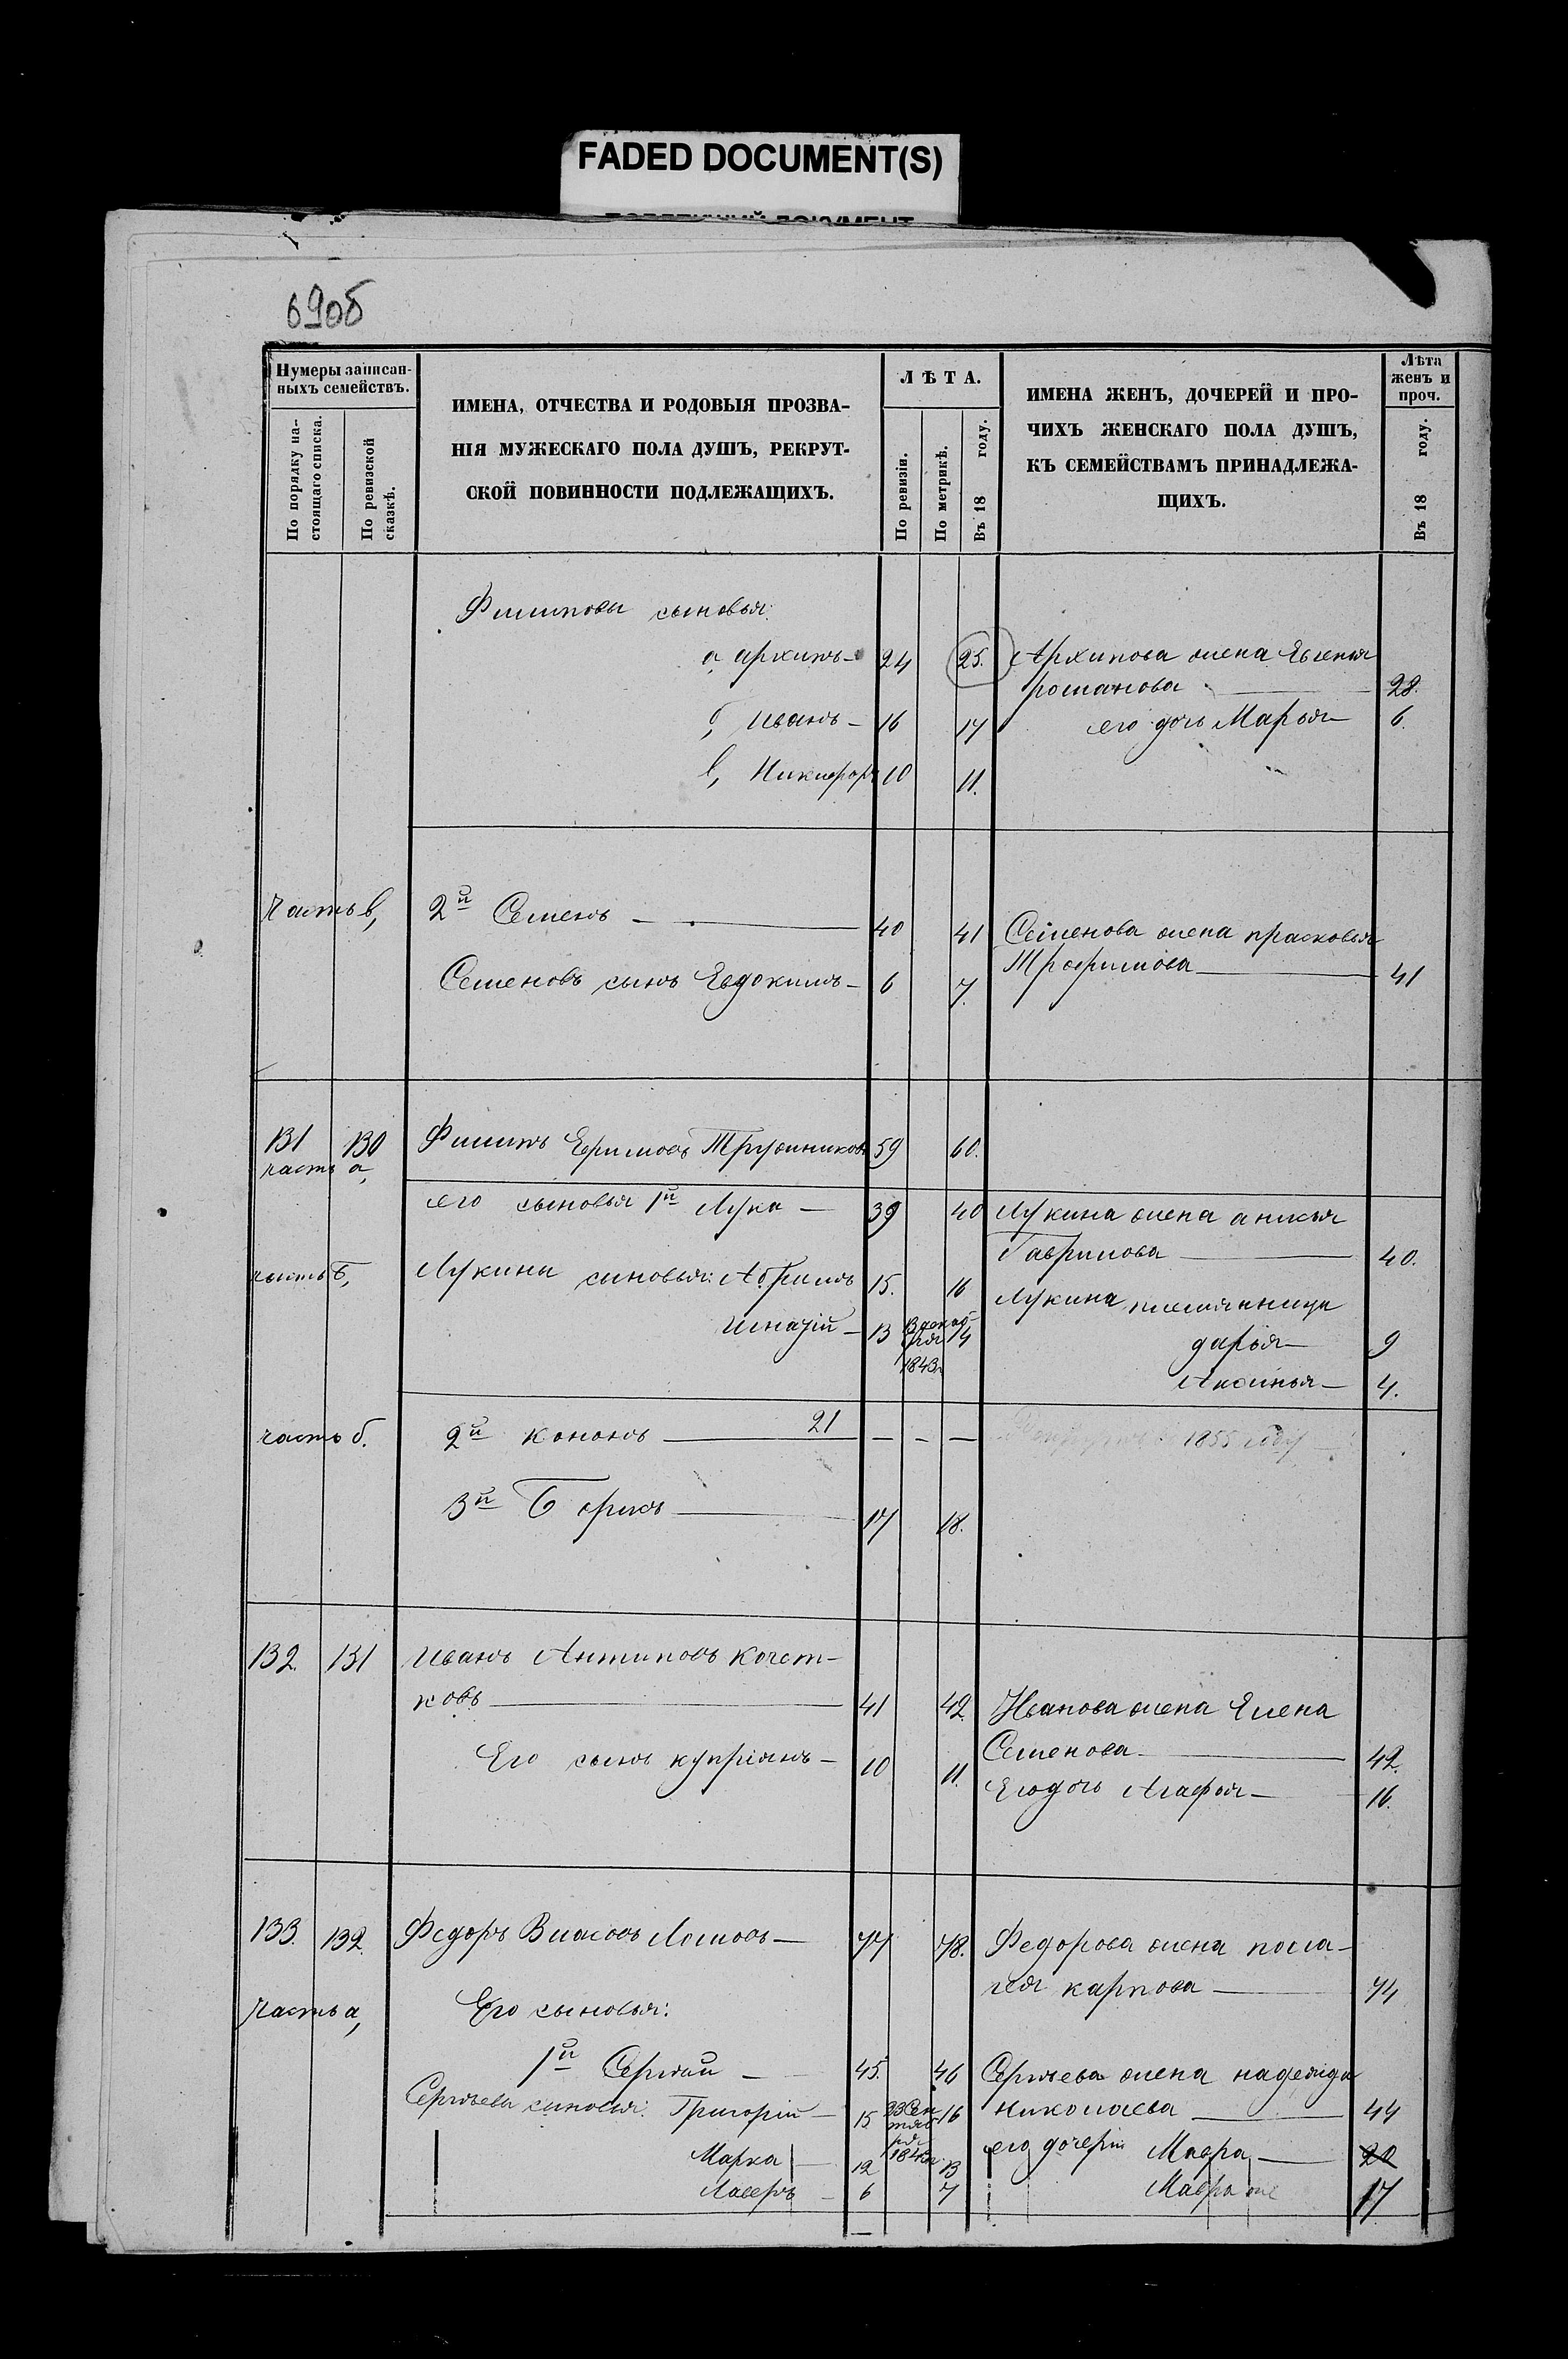 FADED DOCUMENT(S)
69об
Нумеры записан-
ныхъ семействъ.
По порядку на-
стоящаго списка.
По ревизской
сказкѣ.
ИМЕНА, ОТЧЕСТВА И РОДОВЫЯ ПРОЗВА-
НІЯ МУЖЕСКАГО ПОЛА ДУШЪ, РЕКРУТ-
СКОЙ ПОВИННОСТИ ПОДЛЕЖАЩИХЪ.
ЛѢТА.
По ревизіи.
По метрикѣ.
Въ 18 году.
ИМЕНА ЖЕНЪ, ДОЧЕРЕЙ И ПРО-
ЧИХЪ ЖЕНСКАГО ПОЛА ДУШЪ,
КЪ СЕМЕЙСТВАМЪ ПРИНАДЛЕЖА-
ЩИХЪ.
Лѣта
женъ и
проч.
Въ 18 году.
Филиповы сыновья:
а, архипъ — 24 25. Архипова жена Евгенья
романова — 28.
б, иванъ — 16 17 его дочь Марья — 6.
в, Никифоръ 10 11.
Часть в, 2й Семенъ — 40 41 Семенова жена прасковья
Трофимова — 41
Семеновъ сынъ Евдокимъ — 6 7.
131 130 Филипъ Ефимовъ 59 60.
часть а,
его сыновья 1й Лука — 39 40 Лукина жена анисья
Гаврилова — 40.
часть б, Лукины сыновья: Абрамъ 15. 16 Лукина племянница
игнатій — 13 14
дарья — 9
1843г
Аксинья — 4.
часть б. 2й кононъ — 21 — — — 1855 году
3й — 17 18.
132. 131 иванъ Антиповъ Кочет-
ковъ — 41 42. Иванова жена Елена
Семенова — 42.
Его сынъ купріянъ — 10 11.
Его дочь Агафья — 16.
133. 132. Федоръ Власовъ Ломовъ — 77 78. Федорова жена пела-
гея карпова — 74
Часть а, Его сыновья:
1й Сергѣй — 45. 46 Сергѣева жена надежда
николаева — 44
Сергѣевы сыновья: Григорій — 15 23 Сен 16
тяб
ря
1843г.
его дочери Мавра — 20
Марка — 12 13
Лавёръ — 6 7 Мавра же 17